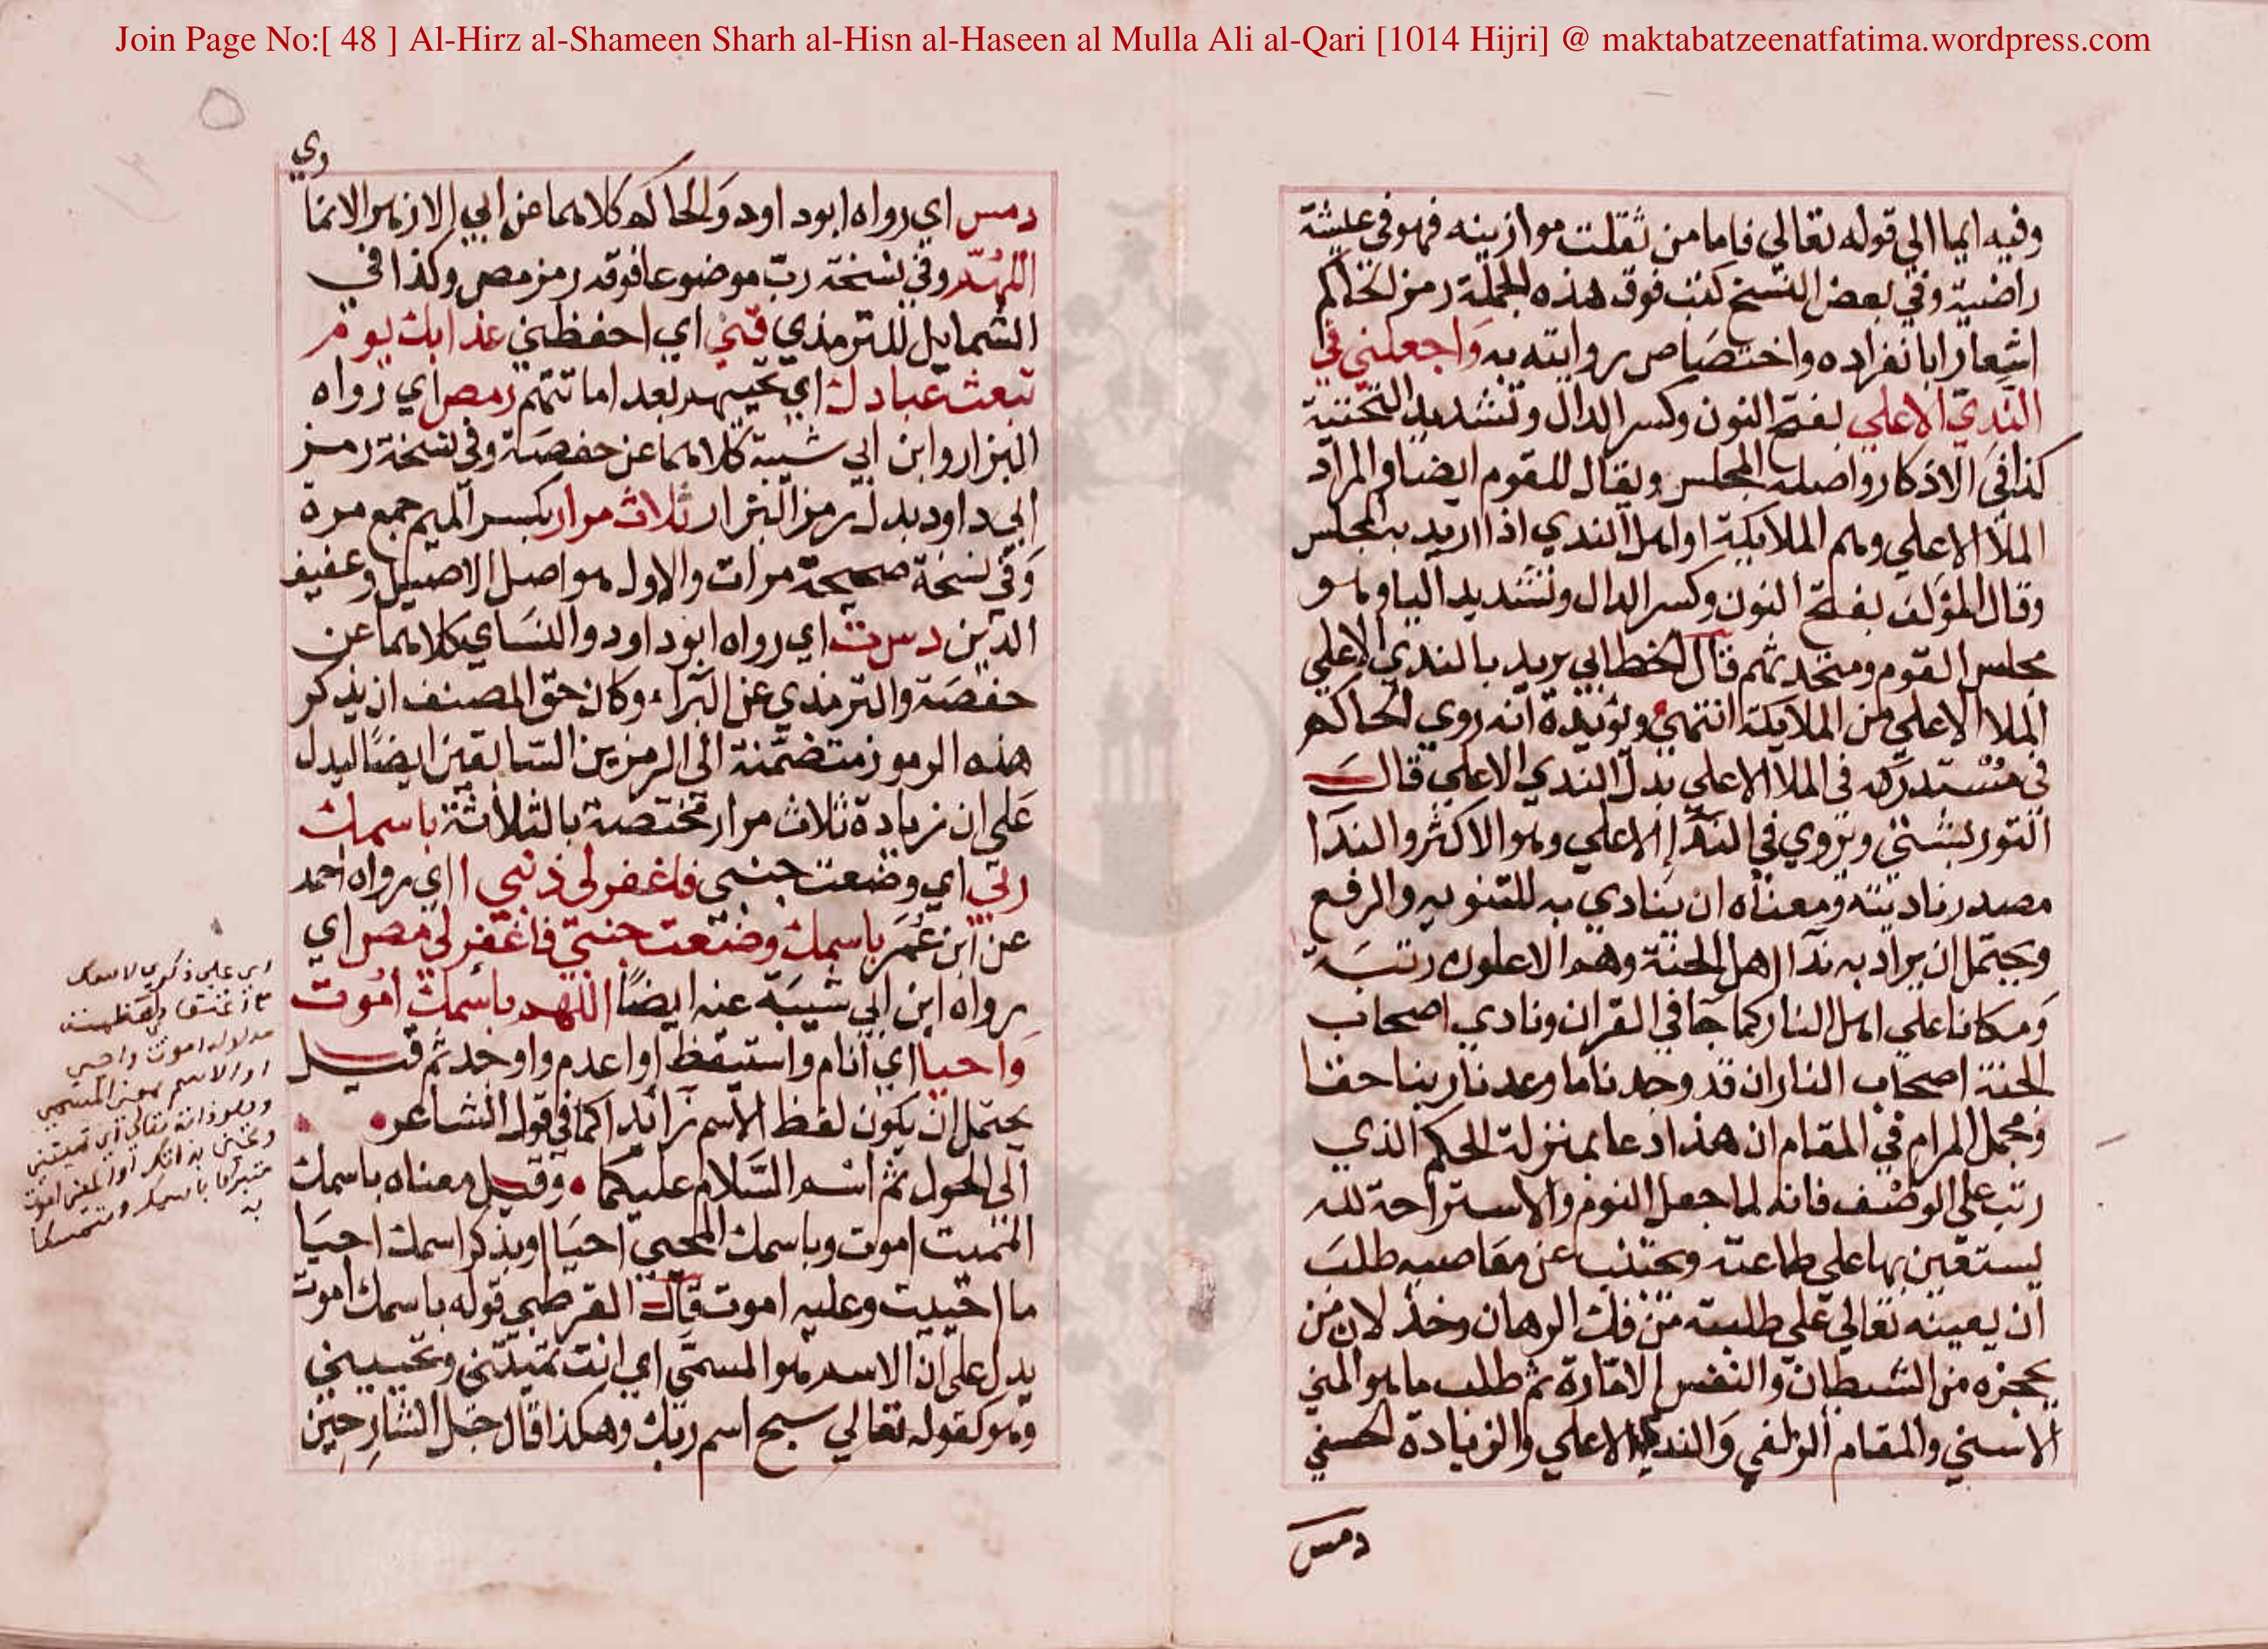 Join Page No:[ 48 ] Al-Hirz al-Shameen Sharh al-Hisn al-Haseen al Mulla Ali al-Qari [1014 Hijri] @ maktabatzeenatfatima.wordpress.com
وفيه ايما الى قوله تعالي فاما من ثقلت موازينه فهو في عيشة
راضية وفي بعض النسخ كتب فوق هذه الجملة رمز الحاكم
اشعارا بانفراده واختصاص روايته به واجعلني في
الندي الاعلي بفتح النون وكسر الدال وتشديد التحتية
كذا في الاذكار واصله المجلس ويقال للقوم ايضا والمراد
الملأ الاعلي وهم الملايكة او اهل الندي اذا اريد به المجلس
وقال المؤلف بفتح النون وكسر الدال وتشديد اليا وهو
مجلس القوم ومتحدثهم قال الخطابي يريد بالندي الاعلي
الملا الاعلي من الملايكة انتهي ويؤيده انه روي الحاكم
في مستدركه في الملا الاعلي بدل الندي الاعلي قال
التوربشتي ويروي في الندا الاعلي وهو الاكثر والندا
مصدر ناديته ومعناه ان ينادي به للتنويه والرفع
ويحتمل ان يراد به ندا اهل الجنة وهم الاعلون رتبة
ومكانا علي اهل النار كما جا في القران ونادي اصحاب
الجنة اصحاب النار ان قد وجدنا ما وعدنا ربنا حقا
ومجمل المرام في المقام ان هذا دعا بمنزلة الحكم الذي
رتب على الوصف فانه لما جعل النوم والاستراحة لله
يستعين بها علي طاعته ويجتنب عن معاصيه طلب
ان يعينه تعالي علي طلبته من فك الرهان وخذلان من
يحجزه من الشيطان والنفس الامارة ثم طلب ما هو المني
الاسني والمقام الزلفي والندي الاعلي والزيادة الحسني
دمس
دمس اي رواه ابو داود والحاكم كلاهما عن ابي الازهر الانما
ري
اللهم وفي نسخة رب موضوعا فوقه رمز مص وكذا في
الشمايل للترمذي قني اي احفظني عذابك يوم
تبعث عبادك اي تحييهم بعد اماتتهم رمص اي رواه
البزار وابن ابي شيبة كلاهما عن حفصة وفي نسخة رمز
ابي داود بدل رمز البزار ثلاث مرار بكسر الميم جمع مرة
وفي نسخة صحيحة مرات والاول هو اصل الاصيل وعفيف
الدين دس ت اي رواه ابو داود والنساي كلاهما عن
حفصة والترمذي عن البراء وكان حق المصنف ان يذكر
هذه الرموز متضمنة الى الرمزين السابقين ايضا ليدل
على ان زيادة ثلاث مرار مختصة بالثلاثة باسمك
ربي اي وضعت جنبي فاغفر لي ذنبي ا اي رواه احمد
عن ابن عمر باسمك وضعت جنبي فاغفر لي مص اي
رواه ابن ابي شيبة عنه ايضا اللهم باسمك اموت
واحيا اي انام واستيقظ او اعدم واوجد ثم قيل
يحتمل ان يكون لفظ الاسم زائدا كما في قول الشاعر
الى الحول ثم اسم السلام عليكما وقيل معناه باسمك
المميت اموت وباسمك المحيي احيا او بذكر اسمك احيا
ما احييت وعليه اموت قال القرطبي قوله باسمك اموت
يدل على ان الاسم هو المسمى اي انت تميتني وتحييني
وهو كقوله تعالي سبح اسم ربك وهكذا قال جل الشارحين